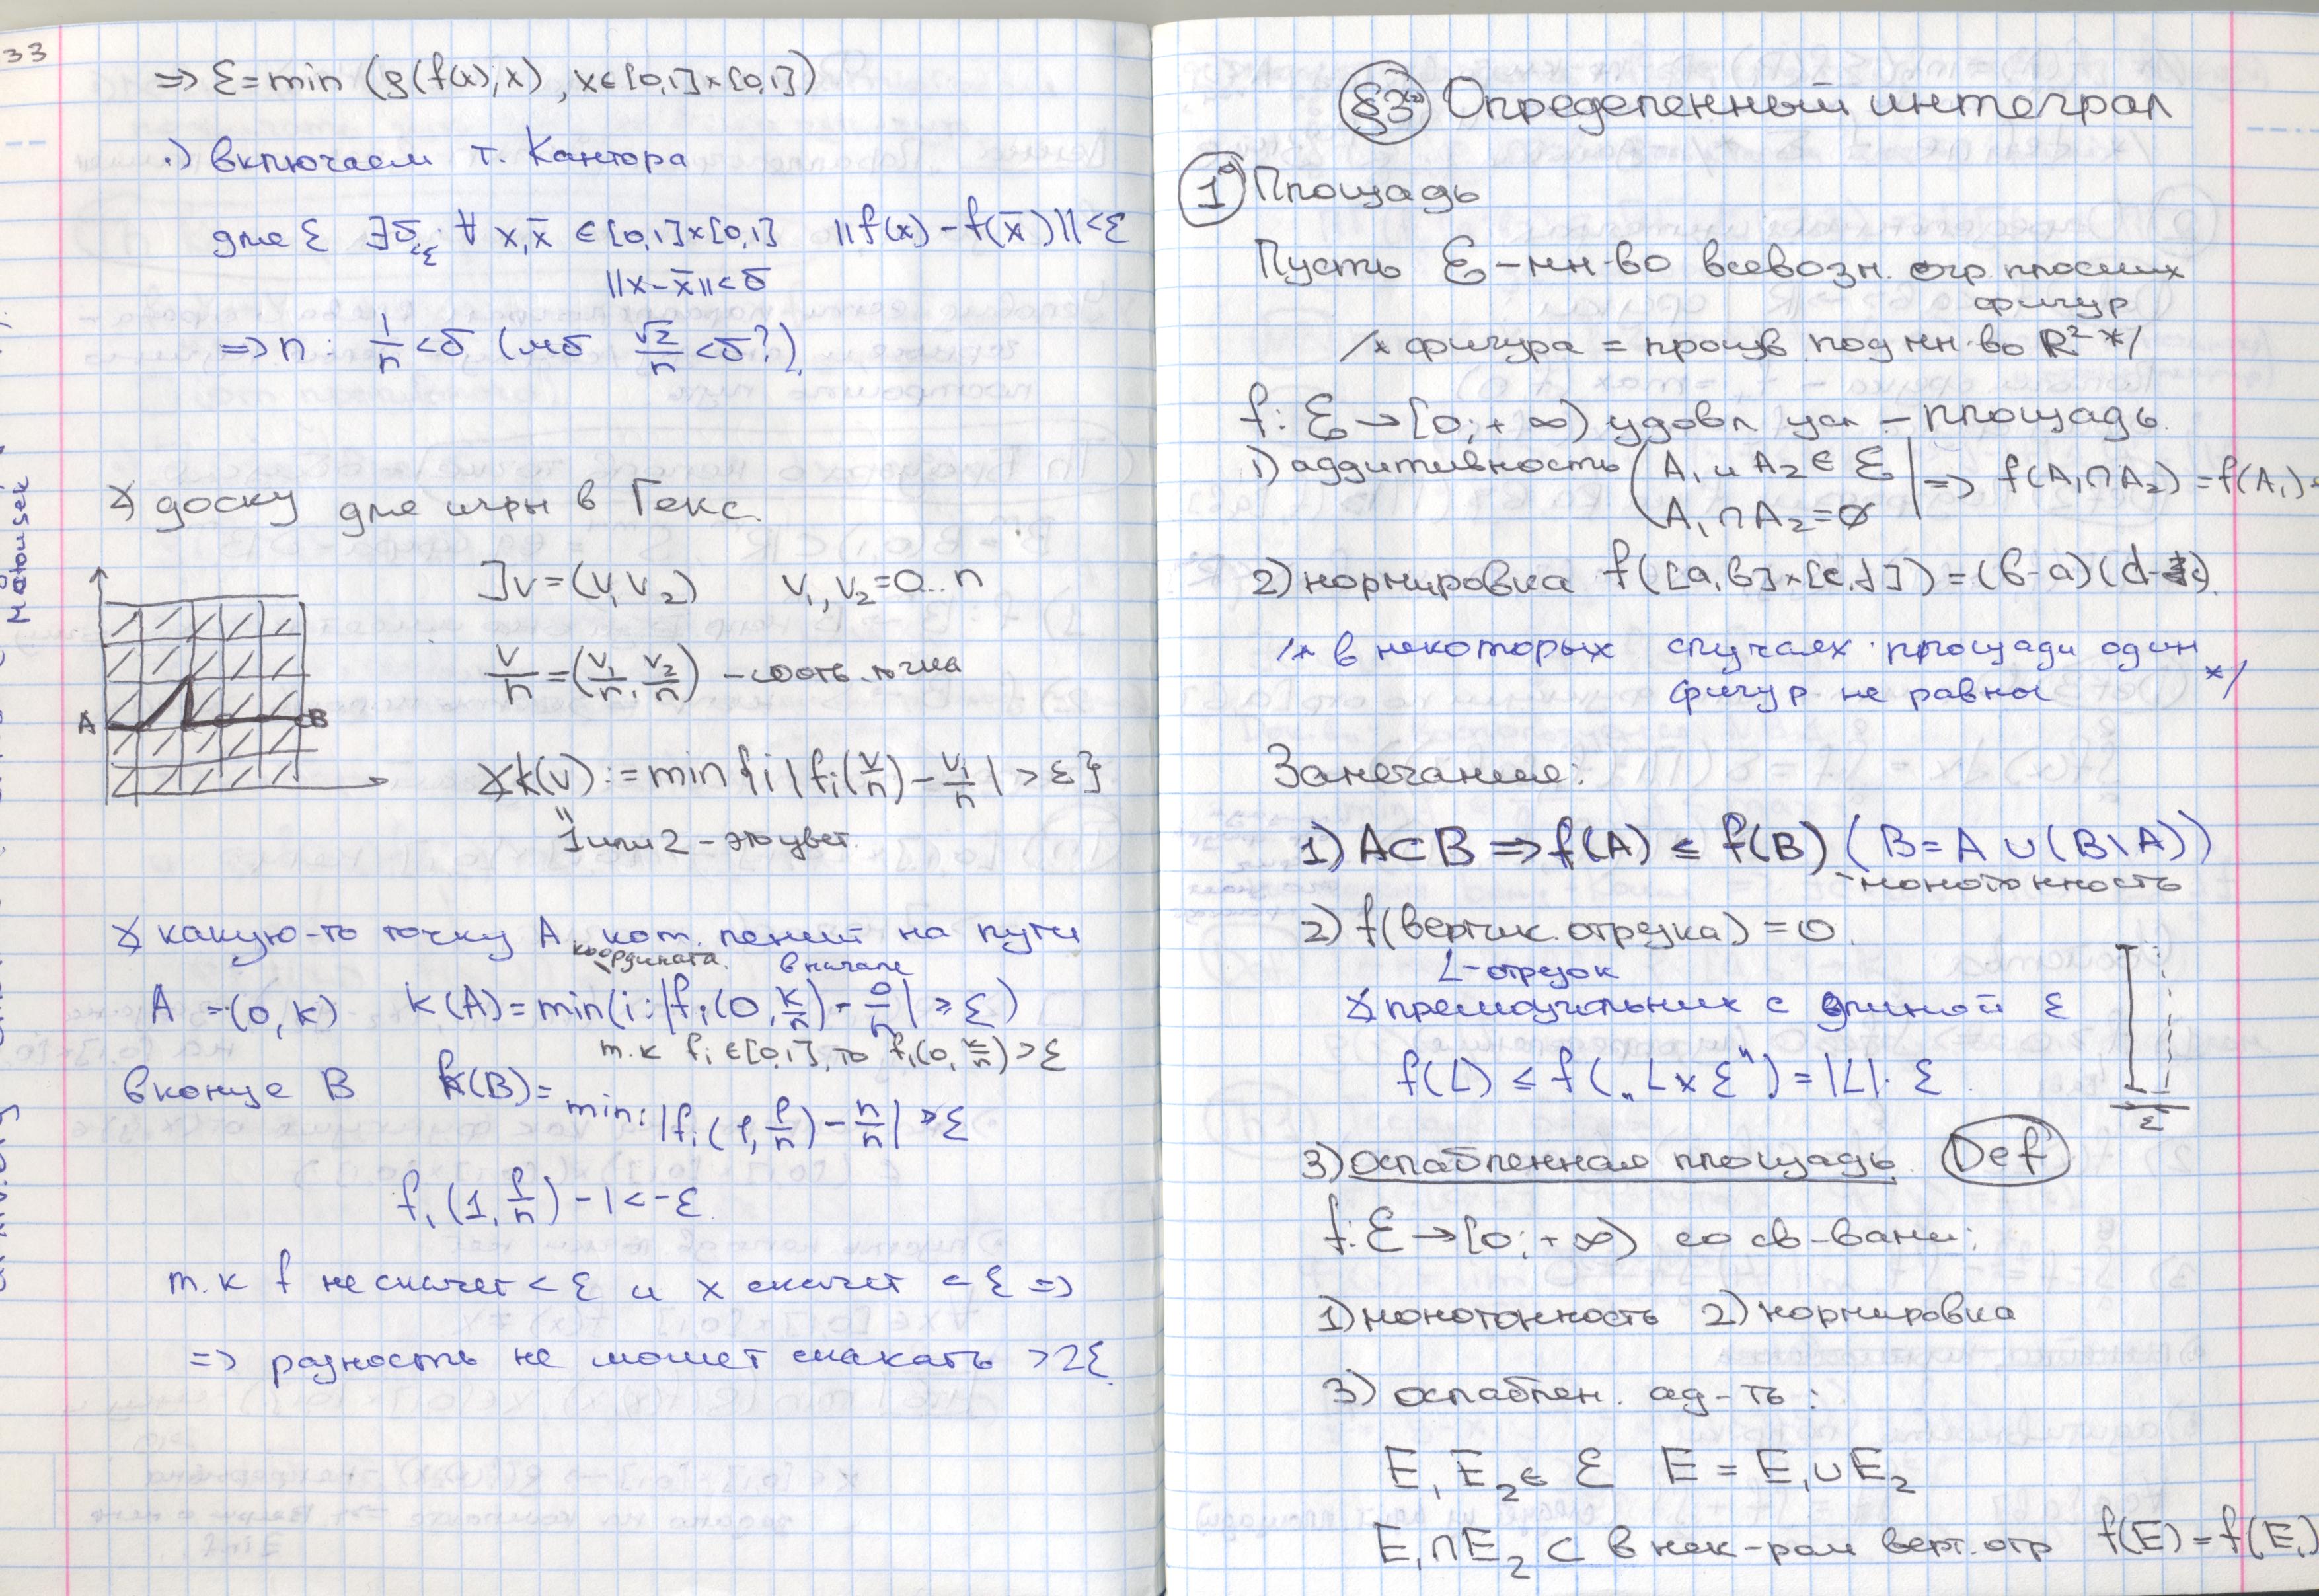 33
⇒ ε = min (ρ(f(x), x), x ∈ [0,1]×[0,1])
.) включаем т. Кантора
для ε ∃δ: ∀ x, x̄ ∈ [0,1]×[0,1] ||f(x) - f(x̄)|| < ε
||x - x̄|| < δ
⇒ n: 1/n < δ (мб √2/n < δ?)
доску для игры в Гекс.
] v = (v₁ v₂) v₁, v₂ = 0..n
v/n = (v₁/n, v₂/n) - соотв. точка
A B
k(v) := min {i | fᵢ(v/n) - vᵢ/n | > ε}
1 или 2 - это цвет.
какую-то точку A, кот. лежит на пути
координата. в начале
A - (0, k) k(A) = min(i: |fᵢ(0, k/n) - 0/n| ≥ ε)
т.к fᵢ ∈ [0,1], то f₁(0, k/n) ≥ ε
в конце B k(B) =
min: |fᵢ(1, l/n) - n/n| ≥ ε
f₁(1, l/n) - 1 < -ε
т.к f не скачет < ε и x скачет < ε ⇒
⇒ разность не может скакать > 2ε
Matousek
§3 Определенный интеграл
1° Площадь
Пусть ℰ - мн-во всевозн. огр. плоских
фигур
/* фигура = произв. подмн-во R² */
f: ℰ → [0; +∞) удовл усл - площадь.
1) аддитивность (A₁ и A₂ ∈ ℰ | ⇒ f(A₁∩A₂) = f(A₁)+
A₁∩A₂ = ∅
2) нормировка f([a,b]×[c,d]) = (b-a)(d-c).
/* в некоторых случаях площади один
фигур не равны */
Замечание:
1) A⊂B ⇒ f(A) ≤ f(B) (B = A ∪ (B\A))
- монотонность
2) f(вертик. отрезка) = 0.
L - отрезок
прямоугольник с длиной ε
f(L) ≤ f(„L × ε") = |L|·ε
ε
3) ослабленная площадь. Def
f: ℰ → [0; +∞) со св-вами:
1) монотонность 2) нормировка
3) ослаблен. ад-ть:
E₁ E₂ ∈ ℰ E = E₁∪E₂
E₁∩E₂ ⊂ в нек-ром верт. отр f(E) = f(E₁)